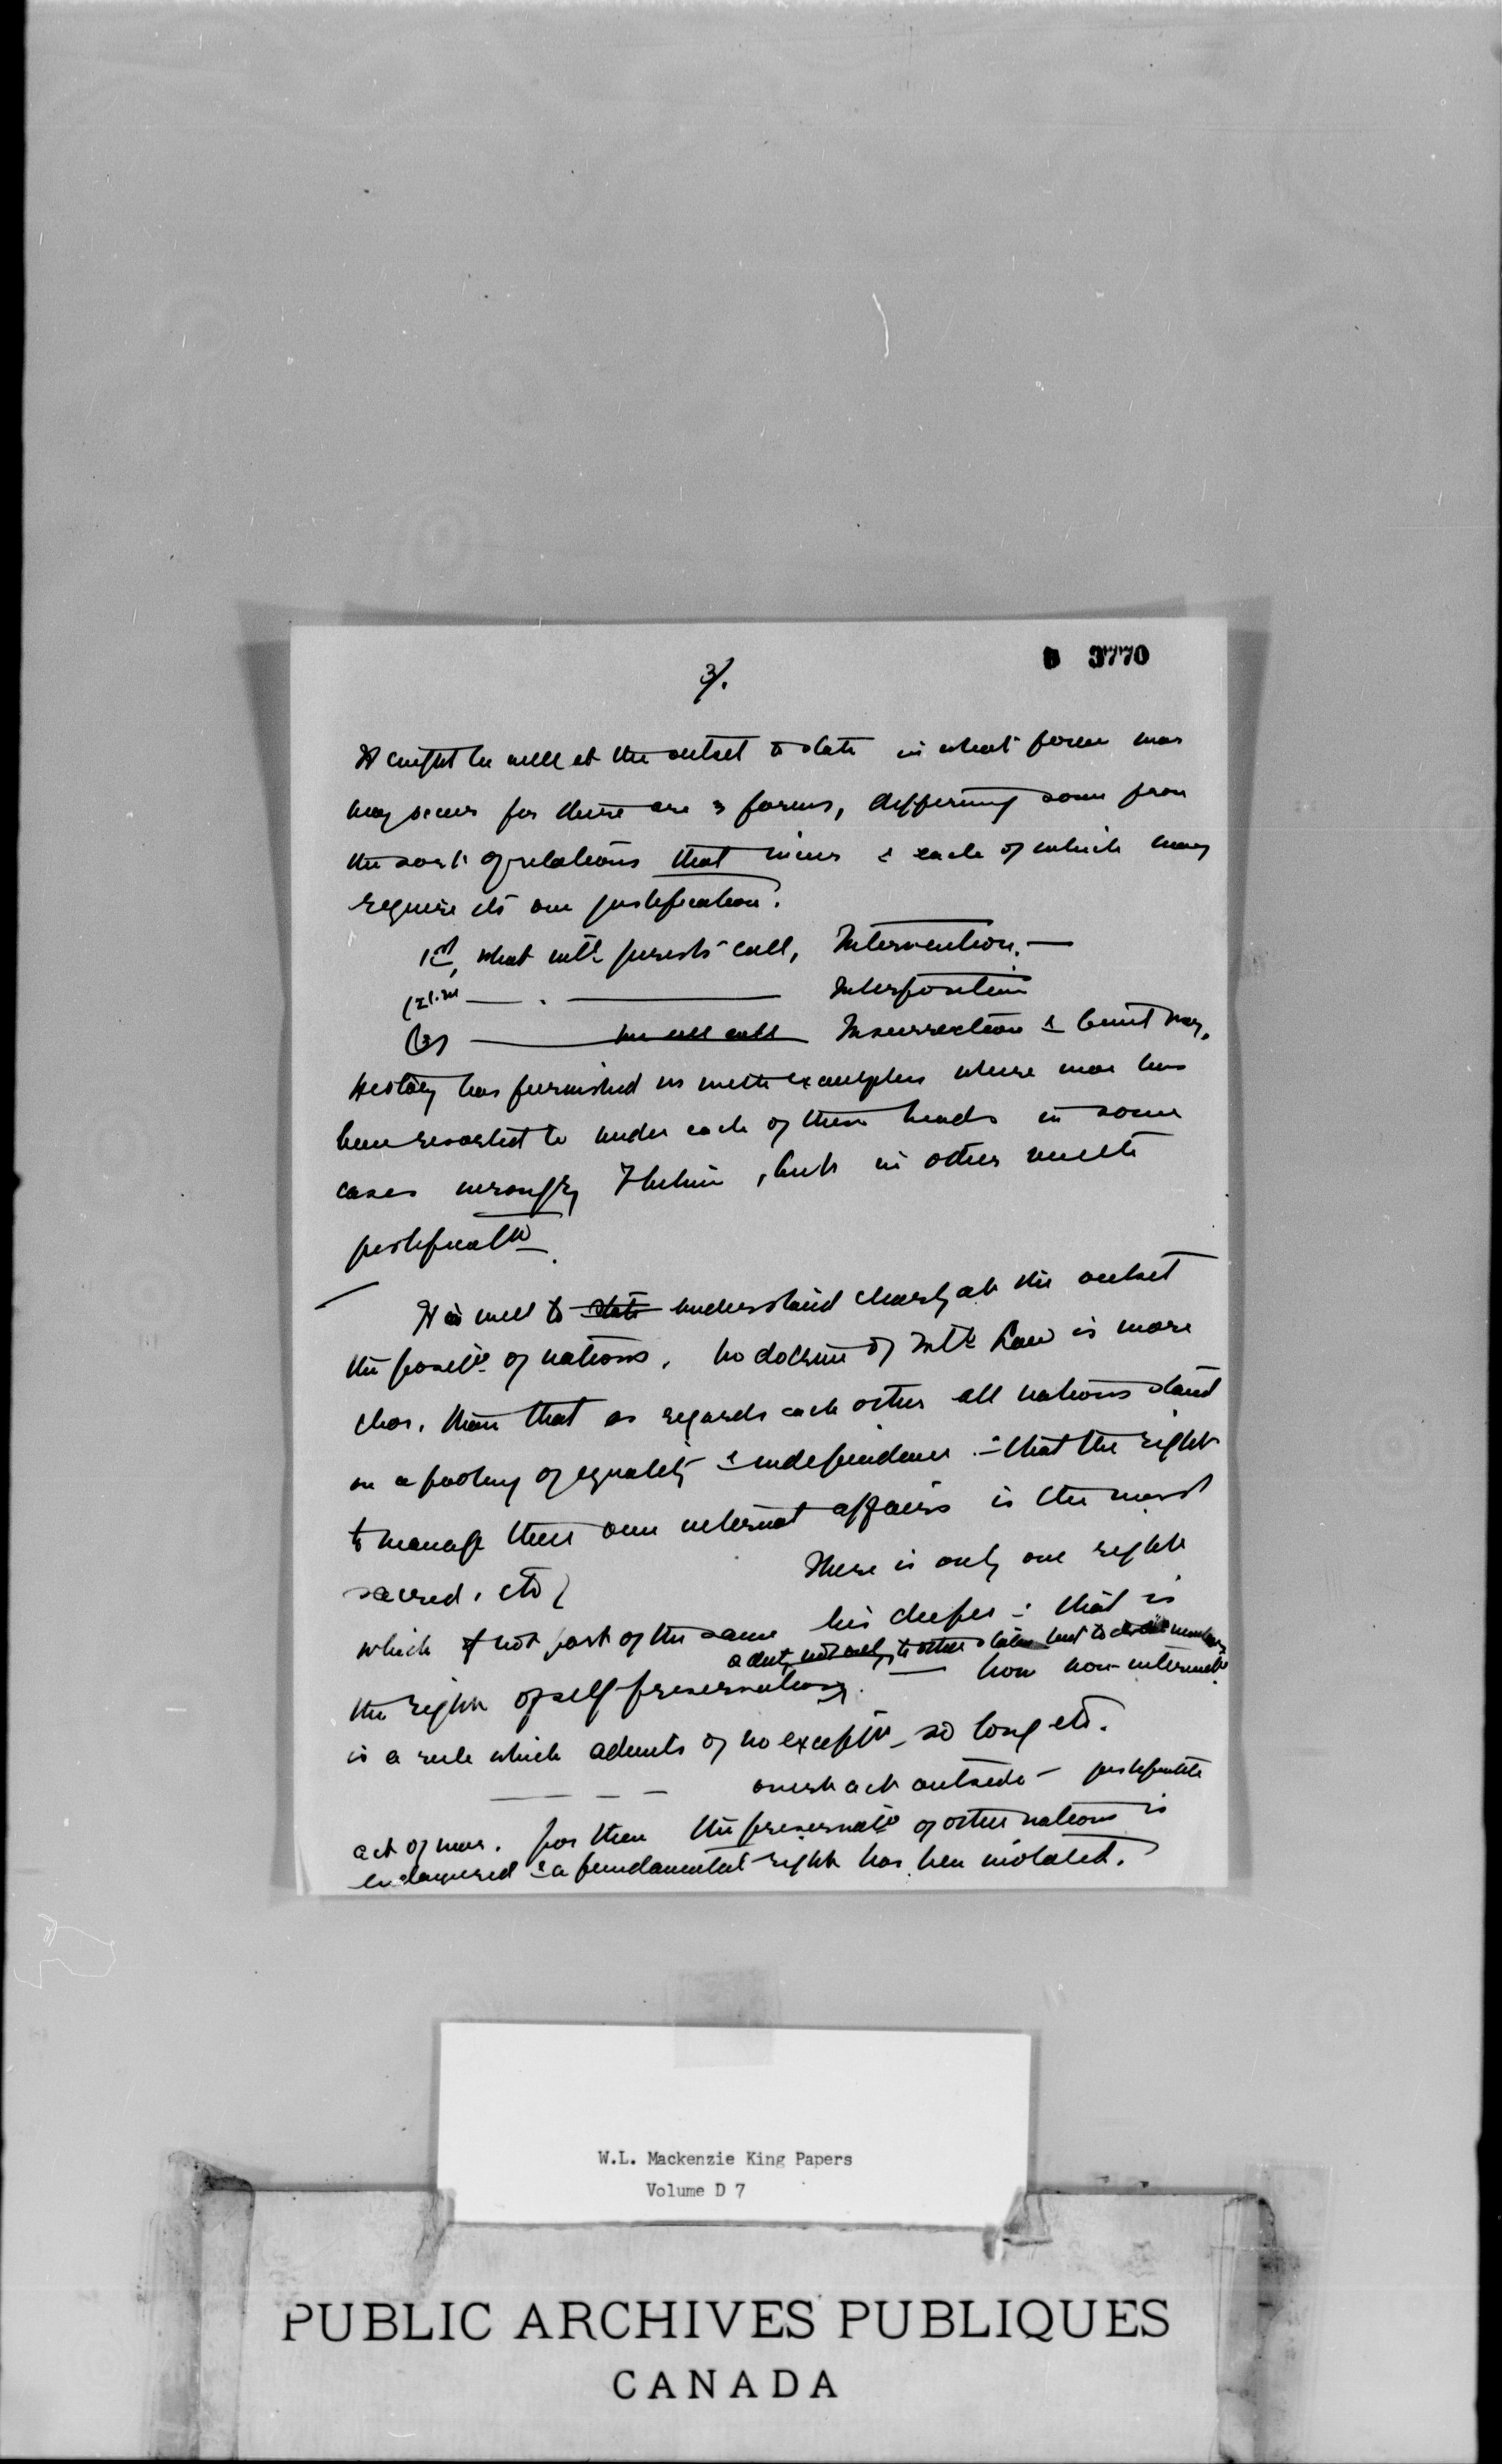 3/.
3770
It might be well at the outset to state in what form war
may occur for there are 3 forms, differing some from
the sort of relations that & each of which may
require its own justification.
1st, what intl jurists call, Intervention. —
— . — Interposition
(3) — we all call Insurrection & Civil War.
History has furnished us with examples where war has
been resorted to under each of these heads in some
cases wrongly , but in other with
justificatn.
It is well to state understand clearly at the outset
the positn of nations. No doctrine of Intl Law is more
clear, than that as regards each other all nations stand
on a footing of equality & independence :- that the right
to manage their own internal affairs is the most
sacred, etc There is only one right
which if not part of the same lies deeper : that is
a duty not only to other states but to members
the right of self preservation. — now non-interventn
is a rule which admits of no exceptn - so long etc.
— — — — act outside - justifiable
act of war. for then the preservatn of other nations is
endangered & a fundamental right has been violated.
W.L. Mackenzie King Papers
Volume D 7
PUBLIC ARCHIVES PUBLIQUES
CANADA